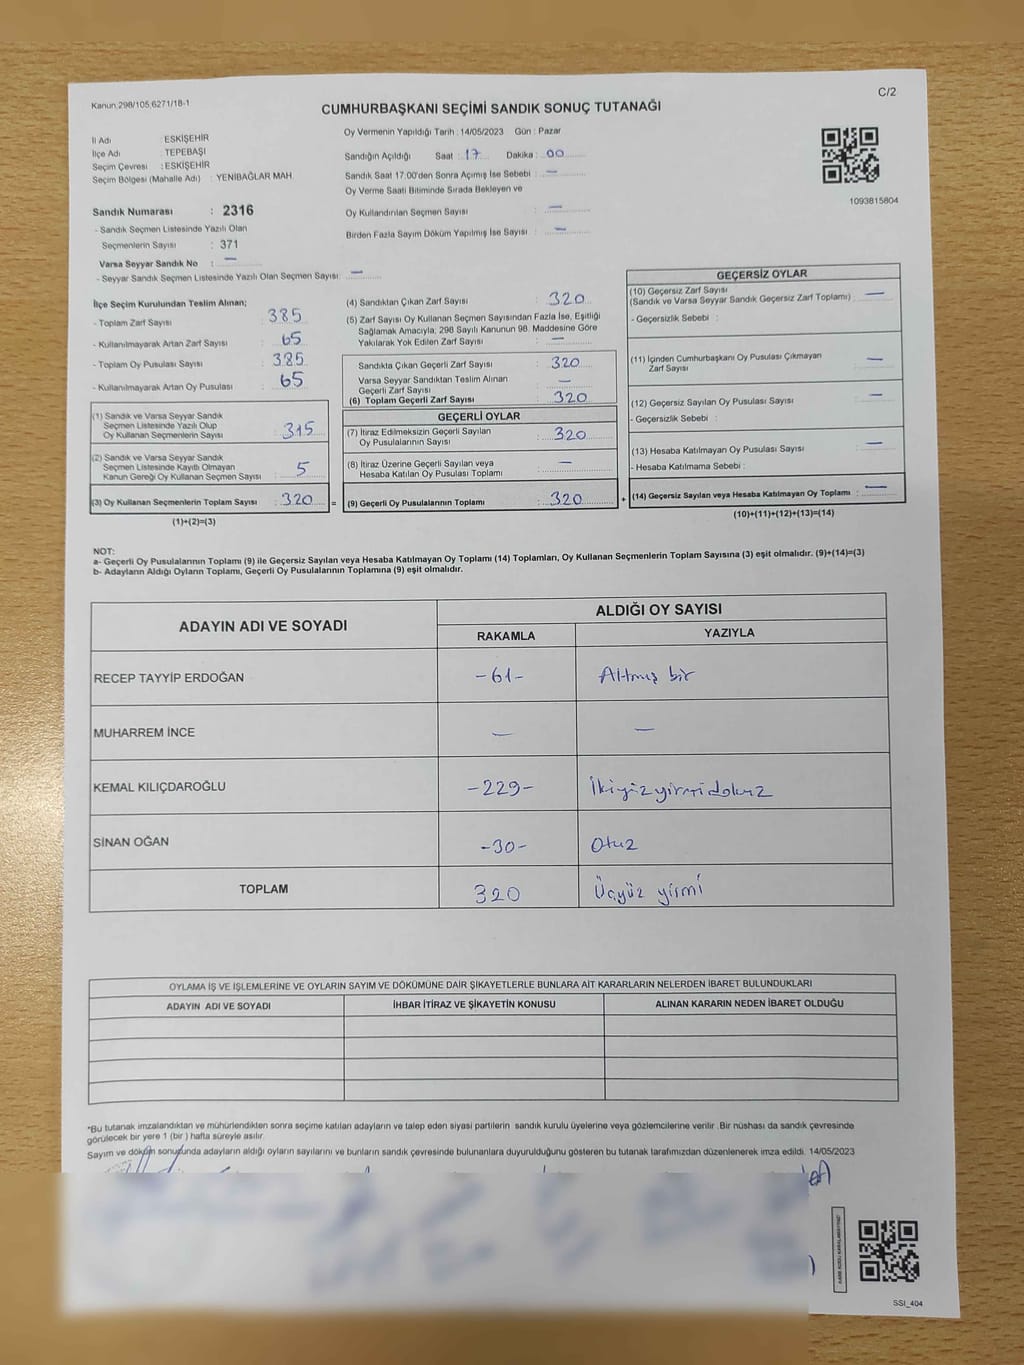 Kanun.298/105.6271/18-1
C/2
CUMHURBAŞKANI SEÇİMİ SANDIK SONUÇ TUTANAĞI
Oy Vermenin Yapıldığı Tarih : 14/05/2023 Gün : Pazar
İl Adı : ESKİŞEHİR
İlçe Adı : TEPEBAŞI
Seçim Çevresi : ESKİŞEHİR
Seçim Bölgesi (Mahalle Adı) : YENİBAĞLAR MAH.
Sandık Numarası : 2316
- Sandık Seçmen Listesinde Yazılı Olan
Seçmenlerin Sayısı : 371
Varsa Seyyar Sandık No : —
- Seyyar Sandık Seçmen Listesinde Yazılı Olan Seçmen Sayısı: —
Sandığın Açıldığı Saat : 17 Dakika : 00
Sandık Saat 17:00'den Sonra Açımış İse Sebebi : —
Oy Verme Saati Bitiminde Sırada Bekleyen ve
Oy Kullandırılan Seçmen Sayısı : —
Birden Fazla Sayım Döküm Yapılmış İse Sayısı : —
1093815804
İlçe Seçim Kurulundan Teslim Alınan;
- Toplam Zarf Sayısı : 385
- Kullanılmayarak Artan Zarf Sayısı : 65
- Toplam Oy Pusulası Sayısı : 385
- Kullanılmayarak Artan Oy Pusulası : 65
(1) Sandık ve Varsa Seyyar Sandık
Seçmen Listesinde Yazılı Olup
Oy Kullanan Seçmenlerin Sayısı : 315
(2) Sandık ve Varsa Seyyar Sandık
Seçmen Listesinde Kayıtlı Olmayan
Kanun Gereği Oy Kullanan Seçmen Sayısı : 5
(3) Oy Kullanan Seçmenlerin Toplam Sayısı : 320 =
(1)+(2)=(3)
(4) Sandıktan Çıkan Zarf Sayısı : 320
(5) Zarf Sayısı Oy Kullanan Seçmen Sayısından Fazla İse, Eşitliği
Sağlamak Amacıyla; 298 Sayılı Kanunun 98. Maddesine Göre
Yakılarak Yok Edilen Zarf Sayısı : —
Sandıkta Çıkan Geçerli Zarf Sayısı : 320
Varsa Seyyar Sandıktan Teslim Alınan
Geçerli Zarf Sayısı : —
(6) Toplam Geçerli Zarf Sayısı : 320
GEÇERLİ OYLAR
(7) İtiraz Edilmeksizin Geçerli Sayılan
Oy Pusulalarının Sayısı : 320
(8) İtiraz Üzerine Geçerli Sayılan veya
Hesaba Katılan Oy Pusulası Toplamı : —
(9) Geçerli Oy Pusulalarının Toplamı : 320 +
GEÇERSİZ OYLAR
(10) Geçersiz Zarf Sayısı
(Sandık ve Varsa Seyyar Sandık Geçersiz Zarf Toplamı) : —
- Geçersizlik Sebebi :
(11) İçinden Cumhurbaşkanı Oy Pusulası Çıkmayan
Zarf Sayısı : —
(12) Geçersiz Sayılan Oy Pusulası Sayısı : —
- Geçersizlik Sebebi :
(13) Hesaba Katılmayan Oy Pusulası Sayısı : —
- Hesaba Katılmama Sebebi :
(14) Geçersiz Sayılan veya Hesaba Katılmayan Oy Toplamı : —
(10)+(11)+(12)+(13)=(14)
NOT:
a- Geçerli Oy Pusulalarının Toplamı (9) ile Geçersiz Sayılan veya Hesaba Katılmayan Oy Toplamı (14) Toplamları, Oy Kullanan Seçmenlerin Toplam Sayısına (3) eşit olmalıdır. (9)+(14)=(3)
b- Adayların Aldığı Oyların Toplamı, Geçerli Oy Pusulalarının Toplamına (9) eşit olmalıdır.
ADAYIN ADI VE SOYADI ALDIĞI OY SAYISI
RAKAMLA YAZIYLA
RECEP TAYYİP ERDOĞAN -61- Altmış bir
MUHARREM İNCE — —
KEMAL KILIÇDAROĞLU -229- İkiyüzyirmidokuz
SİNAN OĞAN -30- Otuz
TOPLAM 320 Üçyüz yirmi
OYLAMA İŞ VE İŞLEMLERİNE VE OYLARIN SAYIM VE DÖKÜMÜNE DAİR ŞİKAYETLERLE BUNLARA AİT KARARLARIN NELERDEN İBARET BULUNDUKLARI
ADAYIN ADI VE SOYADI İHBAR İTİRAZ VE ŞİKAYETİN KONUSU ALINAN KARARIN NEDEN İBARET OLDUĞU
*Bu tutanak imzalandıktan ve mühürlendikten sonra seçime katılan adayların ve talep eden siyasi partilerin sandık kurulu üyelerine veya gözlemcilerine verilir. Bir nüshası da sandık çevresinde
görülecek bir yere 1 (bir) hafta süreyle asılır.
Sayım ve döküm sonucunda adayların aldığı oyların sayılarını ve bunların sandık çevresinde bulunanlara duyurulduğunu gösteren bu tutanak tarafımızdan düzenlenerek imza edildi. 14/05/2023
SSI_404